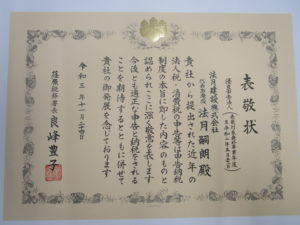 表敬状
法月建設株式会社
代表取締役 法月嗣朗殿
貴社から提出された近年の
法人税、消費税の申告等は申告納税
制度の本旨に即した内容のものと
認められここに深く敬意を表します
今後とも適正な申告と納税をされる
ことを期待するとともに併せて
貴社の御発展を念じております
令和三年十一月
税務署長 良峰豊子